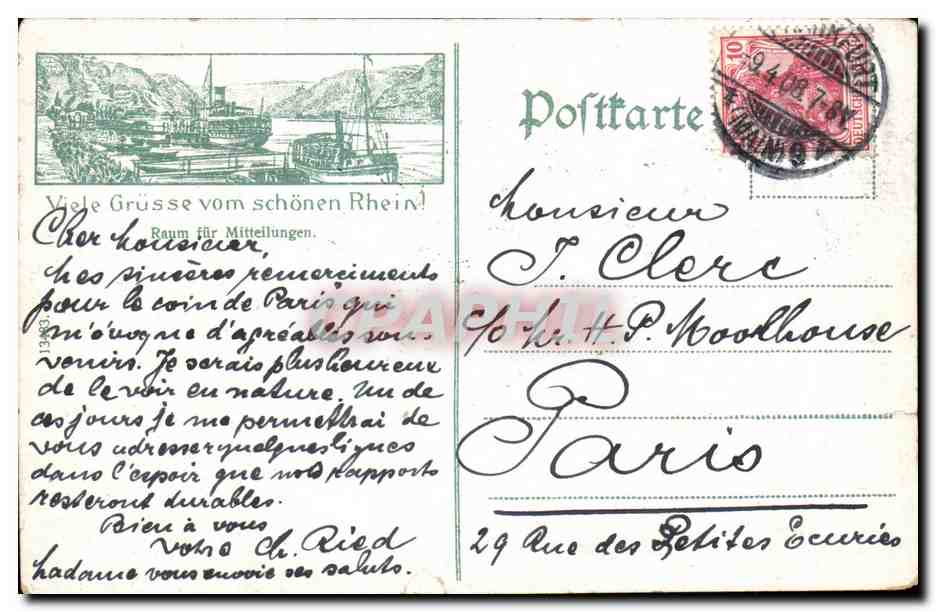 Viele Grüsse vom schönen Rhein!
Raum für Mitteilungen.
Cher Monsieur,
Mes sincères remerciments
pour le coin de Paris qui
m'évoque d'agréables sou-
venirs. Je serais plus heureux
de le voir en nature. Un de
ces jours je me permettrai de
vous adresser quelques lignes
dans l'espoir que nos rapports
resteront durables.
Bien à vous
Votre Ch. Ried
Madame vous envoie ses saluts.
Postkarte
10
DEUTSCHES
FRANKFURT
9.4.08.7-8V.
(MAIN) 9
Monsieur
J. Clerc
c/o Mr. H. P. Moolhouse
Paris
29 Rue des Petites Ecuries
CPAPHIL